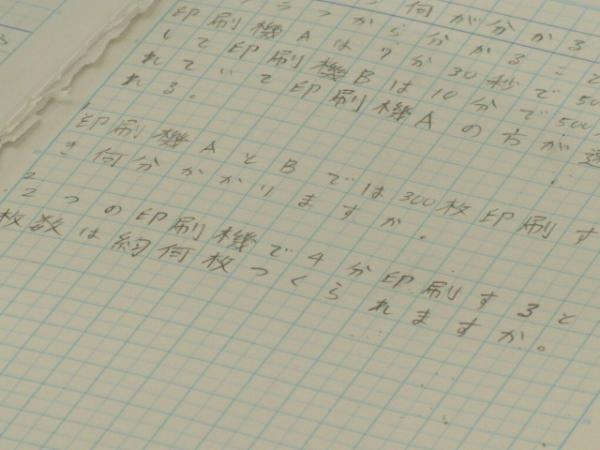 何が分かる
印刷機Aは7分30秒で50
して印刷機Bは10分で500
れていて印刷機Aの方が速
れる。
印刷機AとBでは300枚印刷す
き何分かかりますか。
2.2つの印刷機で4分印刷すると
枚数は約何枚つくられますか。